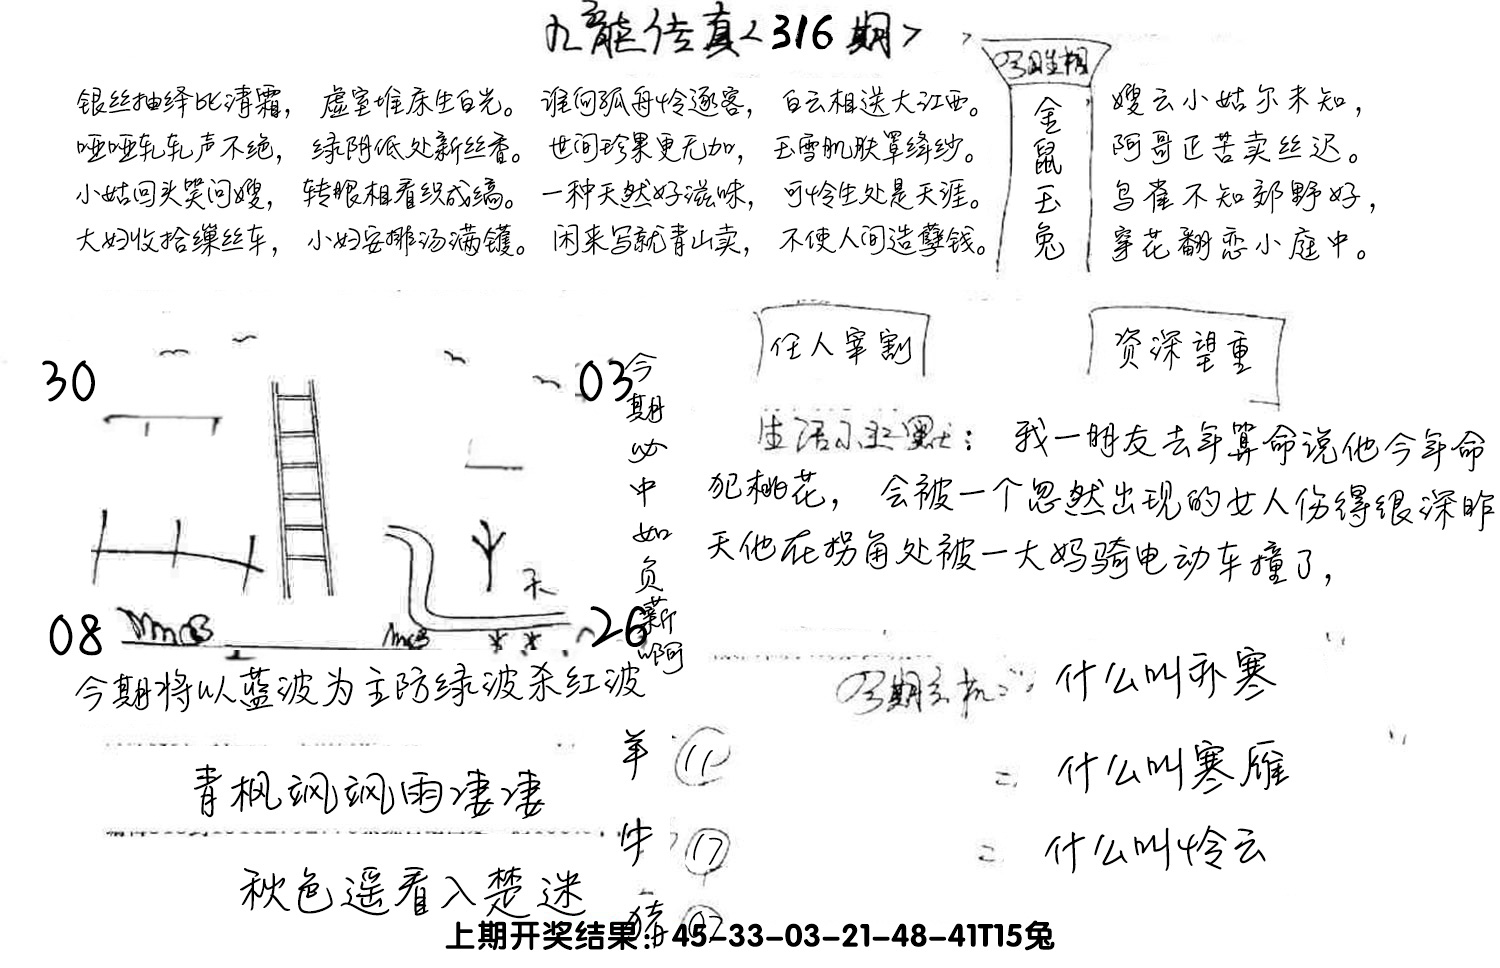 九龙传真<316期>
银丝抽绎比清霜， 虚室堆床生白光。 谁向孤舟怜逐客， 白云相送大江西。
哑哑轧轧声不绝， 绿阴低处新丝香。 世间珍果更无加， 玉雪肌肤罩绛纱。
小姑回头笑问嫂， 转眼相看织成缟。 一种天然好滋味， 可怜生处是天涯。
大妇收拾缫丝车， 小妇安排汤满镬。 闲来写就青山卖， 不使人间造孽钱。
金鼠玉兔
嫂云小姑尔未知，
阿哥正苦卖丝迟。
鸟雀不知郊野好，
穿花翻恋小庭中。
30
03
08
26
今期必中如负薪啊
今期将以蓝波为主防绿波杀红波
青枫飒飒雨凄凄
秋色遥看入楚迷
羊 11
牛 17
猪 02
任人宰割
资深望重
我一朋友去年算命说他今年命
犯桃花， 会被一个忽然出现的女人伤得很深昨
天他在拐角处被一大妈骑电动车撞了，
什么叫孙寒
什么叫寒雁
什么叫怜云
上期开奖结果：45-33-03-21-48-41T15兔